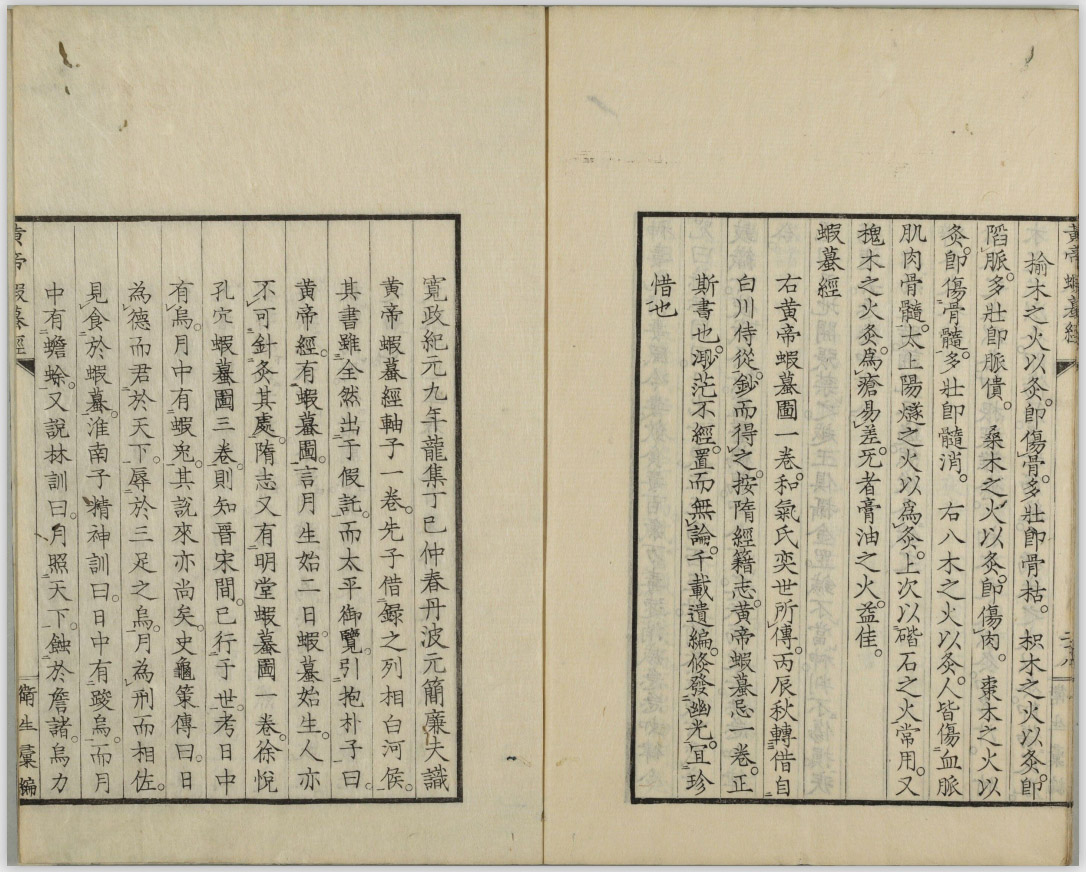 黃帝蝦蟇經
榆木之火以灸卽傷骨多壯卽骨枯。枳木之火以灸。卽
陷脈。多壯卽脈潰。桑木之火以灸。卽傷肉。棗木之火以
灸。卽傷骨髓。多壯卽髓消。右八木之火以灸。人皆傷血脈
肌肉骨髓。太上陽燧之火以爲灸。上次以䃈石之火常用。又
槐木之火灸。爲瘡易差。旡者膏油之火。益佳。
蝦蟇經
右黃帝蝦蟇圖一卷。和氣氏奕世所傳。丙辰秋轉借自
白川侍從。鈔而得之。按隋經籍志。黃帝蝦蟇忌一卷。正
斯書也。渺茫不經。置而無論。千載遺編。倏發幽光。宜珍
惜也
寬政紀元九年龍集丁巳仲春丹波元簡廉夫識
黃帝蝦蟇經軸子一卷。先子借錄之列相白河侯。
其書雖全然出于假託。而太平御覽。引抱朴子曰。
黃帝經。有蝦蟇圖。言月生始二日。蝦蟇始生。人亦
不可針灸其處。隋志又有明堂蝦蟇圖一卷。徐悅
孔穴蝦蟇圖三卷。則知晉宋間。已行于世。考日中
有烏。月中有蝦兔。其說來亦尚矣。史龜策傳曰。日
為德而君於天下。辱於三足之烏。月為刑而相佐。
見食於蝦蟇。淮南子精神訓曰。日中有踆烏。而月
中有蟾蜍。又說林訓曰。月照天下。蝕於詹諸。烏力
黃帝蝦蟇經
衛生彙編